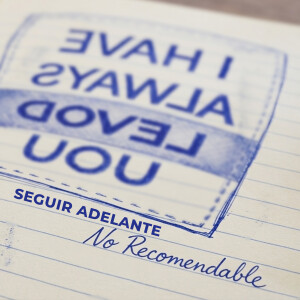 I HAVE
ALWAYS
LOVED
YOU
SEGUIR ADELANTE
No Recomendable